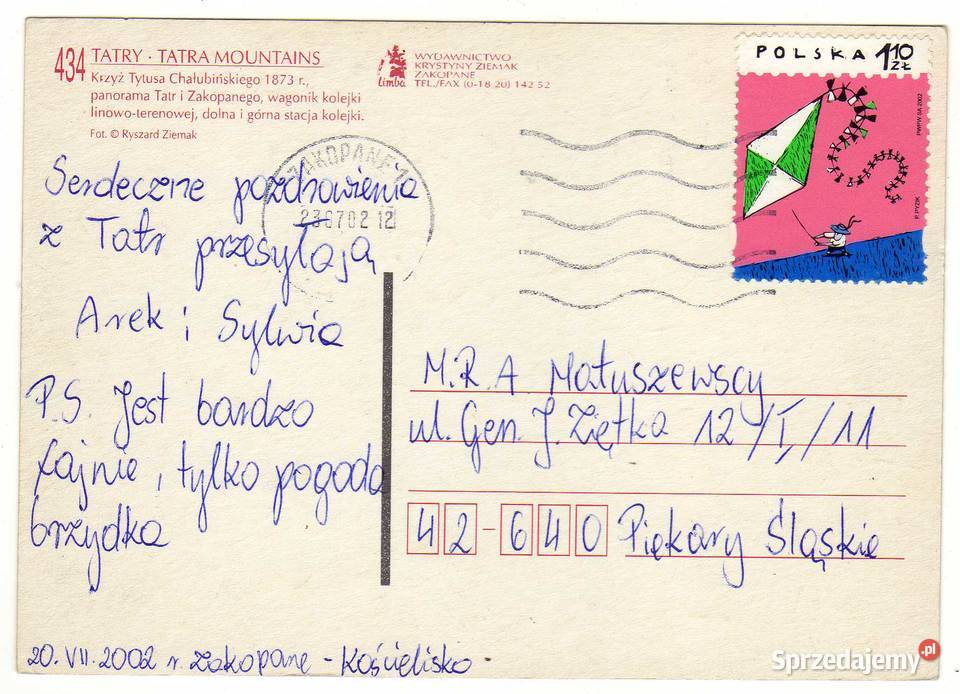 434 TATRY · TATRA MOUNTAINS
Krzyż Tytusa Chałubińskiego 1873 r.,
panorama Tatr i Zakopanego, wagonik kolejki
linowo-terenowej, dolna i górna stacja kolejki.
Fot. © Ryszard Ziemak
limba
WYDAWNICTWO
KRYSTYNY ZIEMAK
ZAKOPANE
TEL./FAX (0-18 20) 142 52
POLSKA 1,10 ZŁ
PWPW SA 2002
P. PYZIK
ZAKOPANE 1
230702 12
Serdeczne pozdrowienia
z Tatr przesyłają
Arek i Sylwia
P.S. Jest bardzo
fajnie, tylko pogoda
brzydka
20.VII.2002 r. Zakopane - Kościelisko
M.R.A Matuszewscy
ul. Gen. J. Ziętka 12/I/11
42-640 Piekary Śląskie
Sprzedajemy.pl